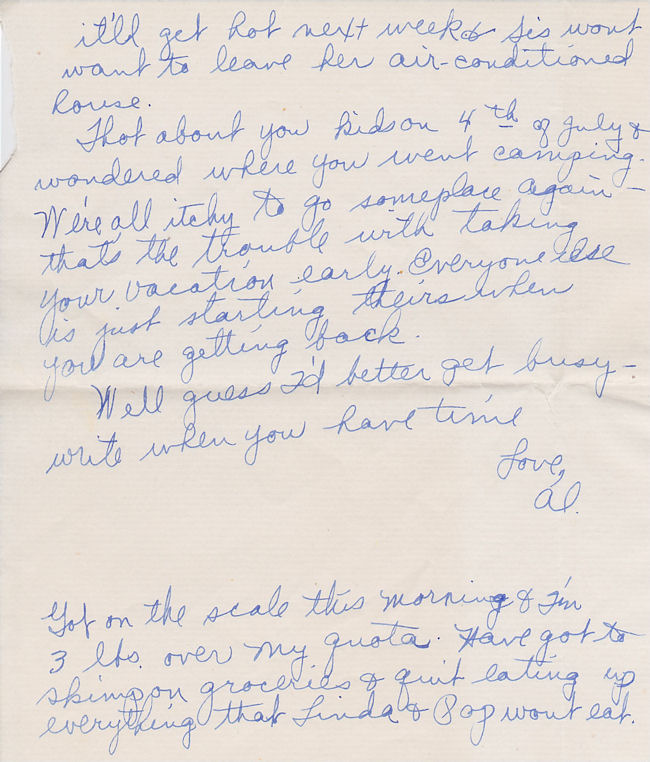 it'll get hot next week & Sis wont
want to leave her air-conditioned
house.
Thot about you kids on 4th of July &
wondered where you went camping.
We're all itchy to go someplace again -
that's the trouble with taking
your vacation early. Everyone else
is just starting theirs when
you are getting back.
Well guess I'd better get busy -
write when you have time
Love,
Al.
Got on the scale this morning & I'm
3 lbs. over my quota. Have got to
skimp on groceries & quit eating up
everything that Linda & Pop wont eat.